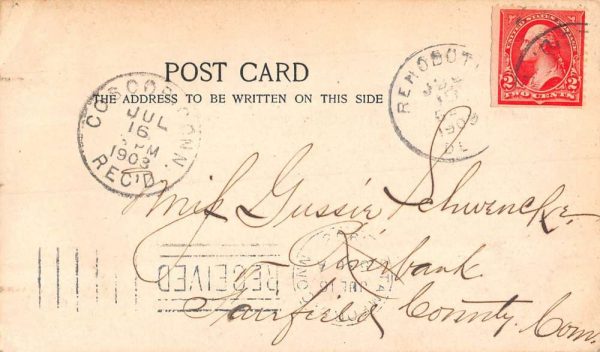 POST CARD
THE ADDRESS TO BE WRITTEN ON THIS SIDE
COS COB CONN.
JUL
16
PM
1903
REC'D
REHOBOTH
1903
DEL
UNITED STATES
2 2
TWO CENTS
Miss Gussie Schwencke,
Riverbank
Fairfield County Conn.
RECEIVED